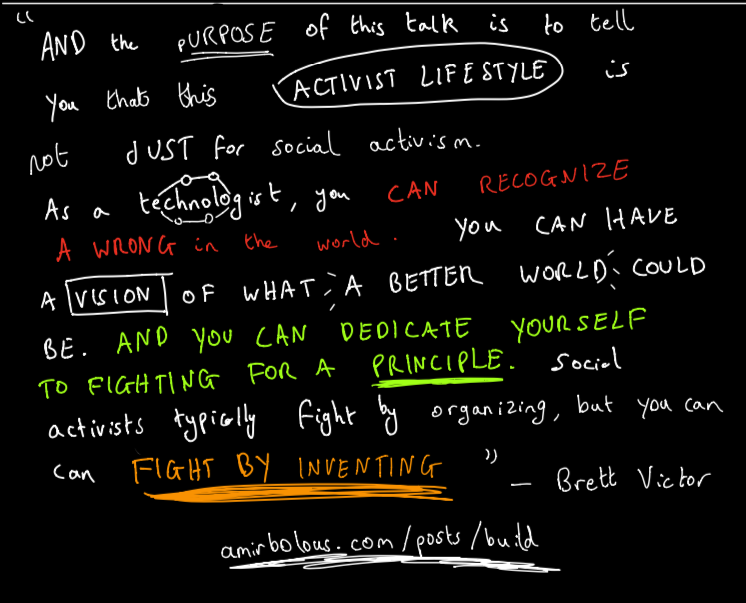 "AND the PURPOSE of this talk is to tell
you that this ACTIVIST LIFESTYLE is
not JUST for social activism.
As a technologist, you CAN RECOGNIZE
A WRONG in the world. you CAN HAVE
A VISION OF WHAT A BETTER WORLD COULD
BE. AND YOU CAN DEDICATE YOURSELF
TO FIGHTING FOR A PRINCIPLE. Social
activists typically fight by organizing, but you can
can FIGHT BY INVENTING" — Brett Victor
amirbolous.com/posts/build